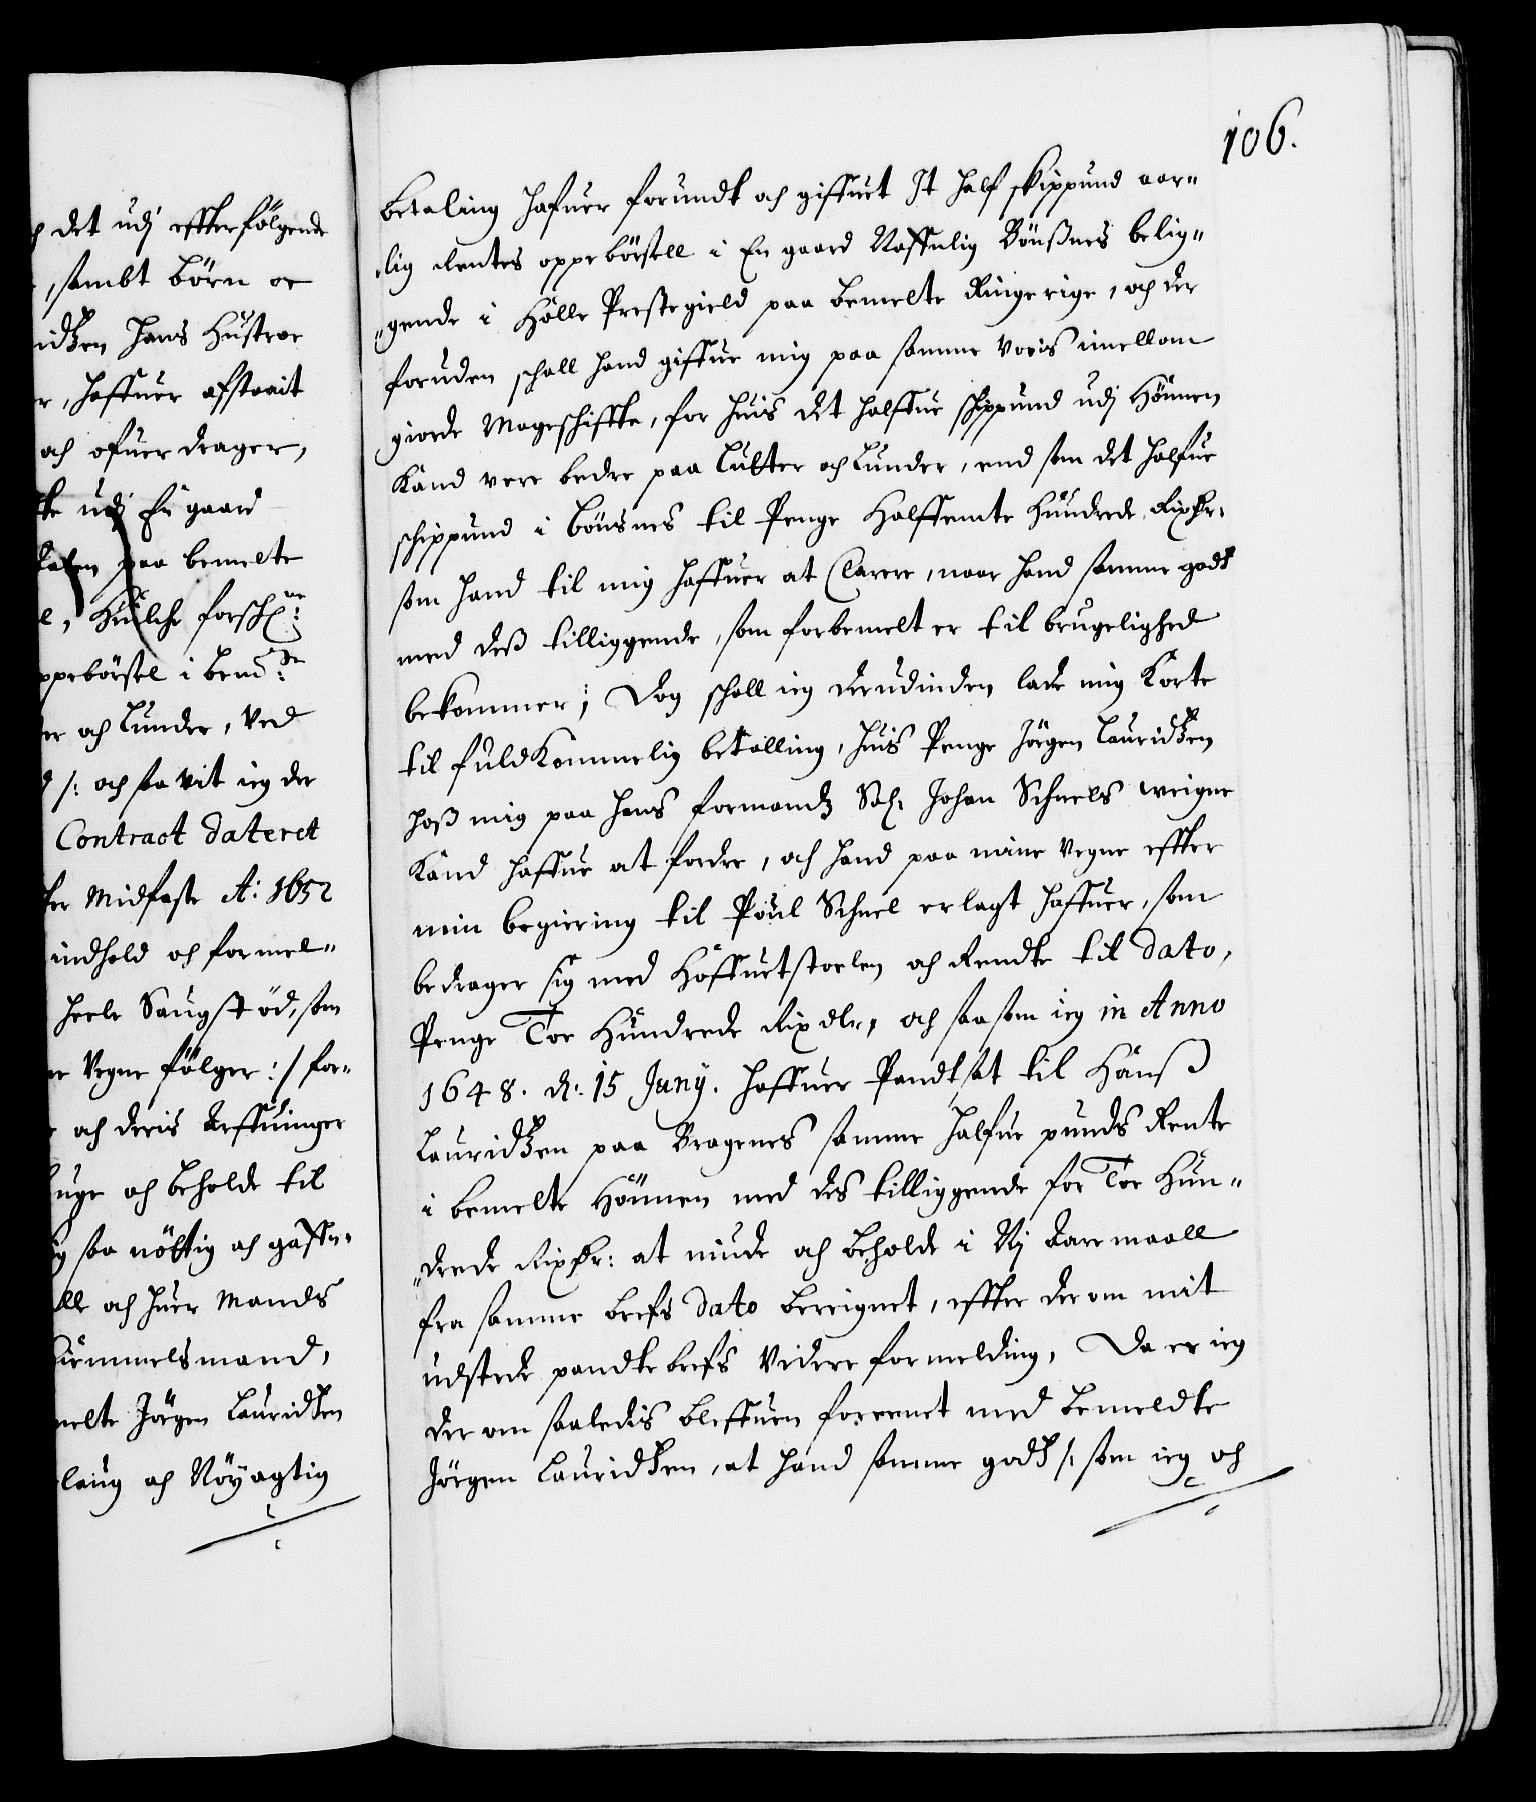 106.
det udj effterfölgende
, sambt börn oc
idtzen hans Hustroe
r, haffuer affstaait
och ofuer drager,
te udj En gaard
paa bemelte
e, huilche forschne:
ppebörsel i bemte:
er och Lunder, Ved
/: och saa vit ieg der
Contract dateret
ter Midfaste Ao: 1652
indhold och formel„
heele Saugstöd, som
er Vegne fölger :/ for„
och deris Arffuinger
uge och beholde til
saa nöttig och gaffn„
lle och huer Mands
Hiemmelsmand,
melte Jörgen Lauridtzen
laug och Nöyagtig
betaling hafuer forundt och giffuet It half skippund aar„
„lig Rentes oppebörsell i En gaard Naffnlig Bönßnes belig„
„gende i Holle Prestegield paa bemelte Ringerige, och der
foruden schall hand giffue mig paa samme Voris imellom
giorde Mageschiffte, for huis det halffue schippund udj Hönnen
Kand vere bedre paa Lutter och Lunder, end som det halfue
schippund i Bönsnes til Penge Halffemte Hundrede Rixdr.
som hand til mig haffuer at Clarere, naar hand samme godtz
med deß tilliggende, som forbemelt er til brugelighed
bekommer; Dog schall ieg derudinden lade mig Korte
til fuldkommelig betalling, huis Penge Jörgen Lauridtzen
hoß mig paa hans formandtz Sal: Johan Schnels weigne
Kand haffue at fordre, och hand paa mine Vegne effter
min begiering til Poul Schnel erlagt haffuer, som
bedrager sig med Höffuetstoelen och Rendte til dato,
Penge Toe Hundrede Rixdlr, och saasom ieg in Anno
1648. d: 15 Junÿ. haffuer Pandtsat til Hanß
Lauridtzen paa Bragenes samme halfue punds Rente
i bemelte Hönnen med des tilliggende for Toe Hun„
„drede Rixdr: at niude och beholde i Nj Aaremaall
fra samme brefs dato bereignet, effter derom mit
udstede pandtebrefs Videre formelding, Da er ieg
derom saaledis bleffuen foreenet med bemeldte
Jörgen Lauridtzen, at hand samme godtz /: som ieg och